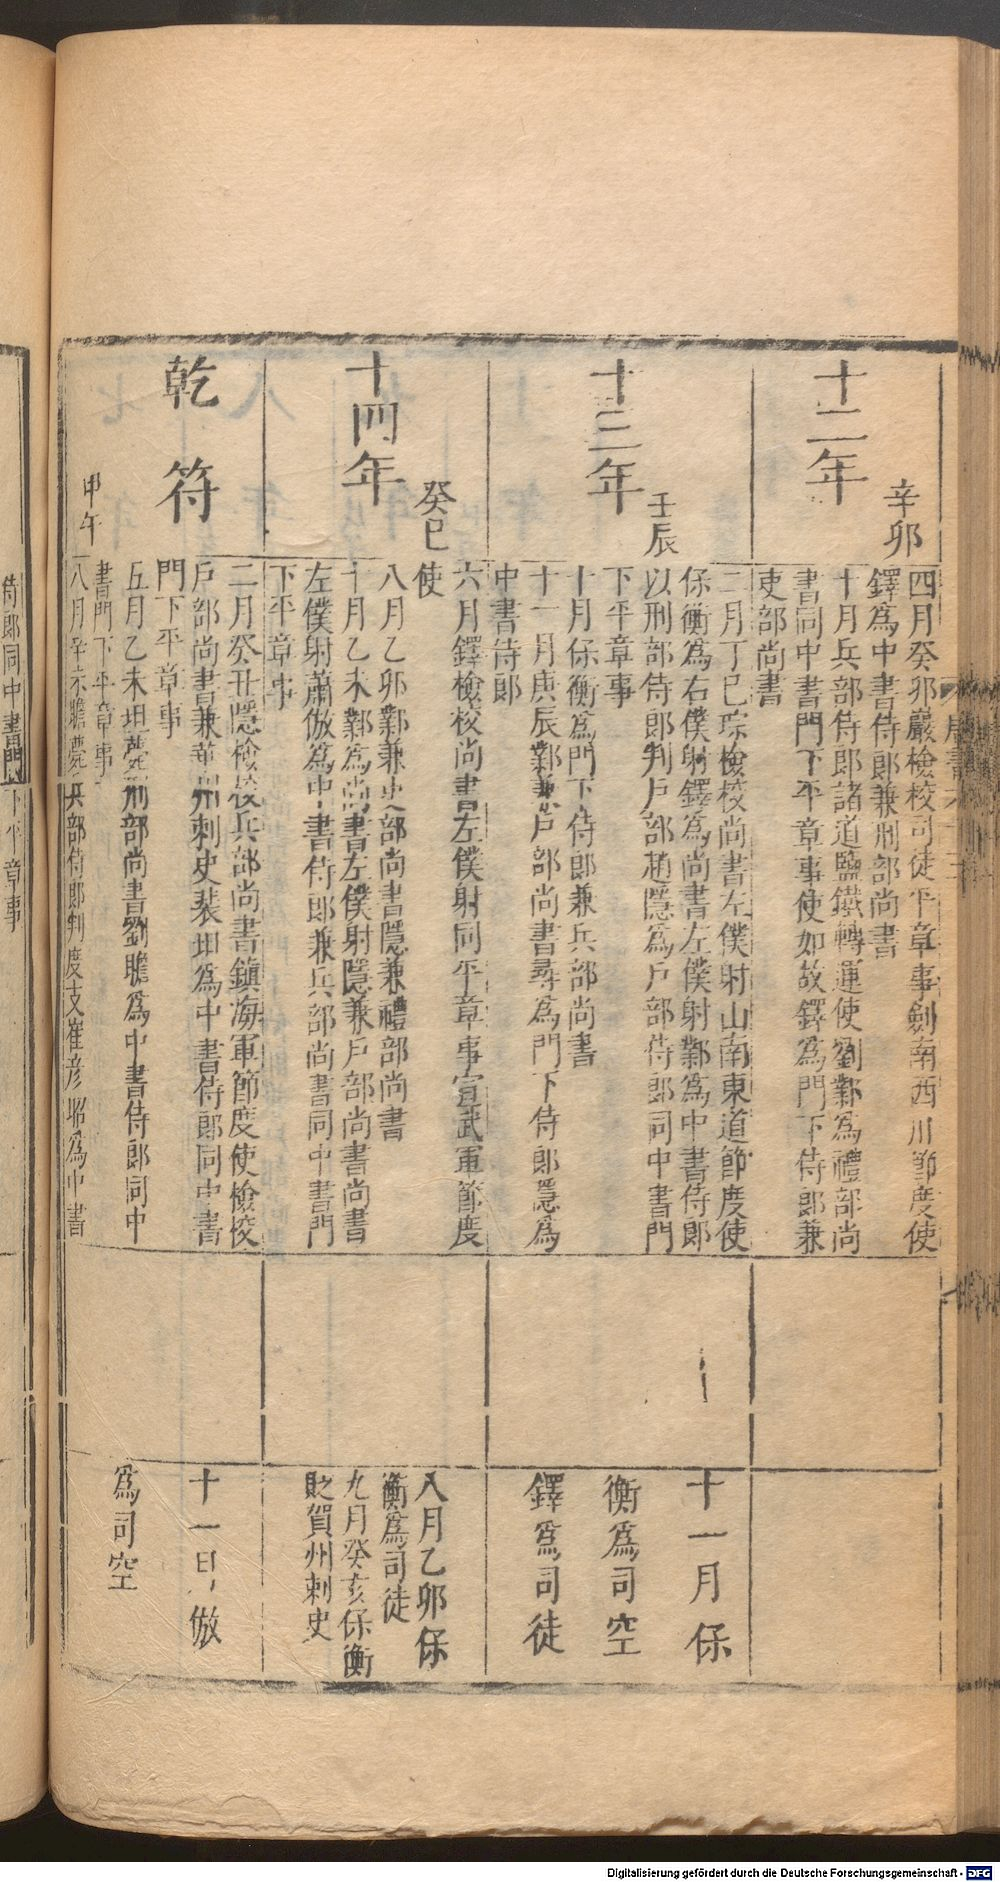 十二年
辛卯
四月癸卯巖檢校司徒平章事劍南西川節度使
鐸爲中書侍郎兼刑部尚書
十月兵部侍郎諸道鹽鐵轉運使劉鄴爲禮部尚
書同中書門下平章事使如故鐸爲門下侍郎兼
吏部尚書
十三年
壬辰
二月丁巳琮檢校尚書左僕射山南東道節度使
保衡爲右僕射鐸爲尚書左僕射鄴爲中書侍郎
以刑部侍郎判戶部趙隱爲戶部侍郎同中書門
下平章事
十月保衡爲門下侍郎兼兵部尚書
十一月庚辰鄴兼戶部尚書尋爲門下侍郎隱爲
中書侍郎
十一月保
衡爲司空
鐸爲司徒
十四年
癸巳
六月鐸檢校尚書左僕射同平章事宣武軍節度
使
八月乙卯鄴兼吏部尚書隱兼禮部尚書
十月乙未鄴爲尚書左僕射隱兼戶部尚書尚書
左僕射蕭倣爲中書侍郎兼兵部尚書同中書門
下平章事
八月乙卯保
衡爲司徒
九月癸亥保衡
貶賀州刺史
乾符
甲午
二月癸丑隱檢校兵部尚書鎮海軍節度使檢校
戶部尚書兼華州刺史裴坦爲中書侍郎同中書
門下平章事
五月乙未坦薨刑部尚書劉瞻爲中書侍郎同中
書門下平章事
八月辛未瞻薨兵部侍郎判度支崔彥昭爲中書
十一月倣
爲司空
侍郎同中書門下平章事
Digitalisierung gefördert durch die Deutsche Forschungsgemeinschaft - DFG